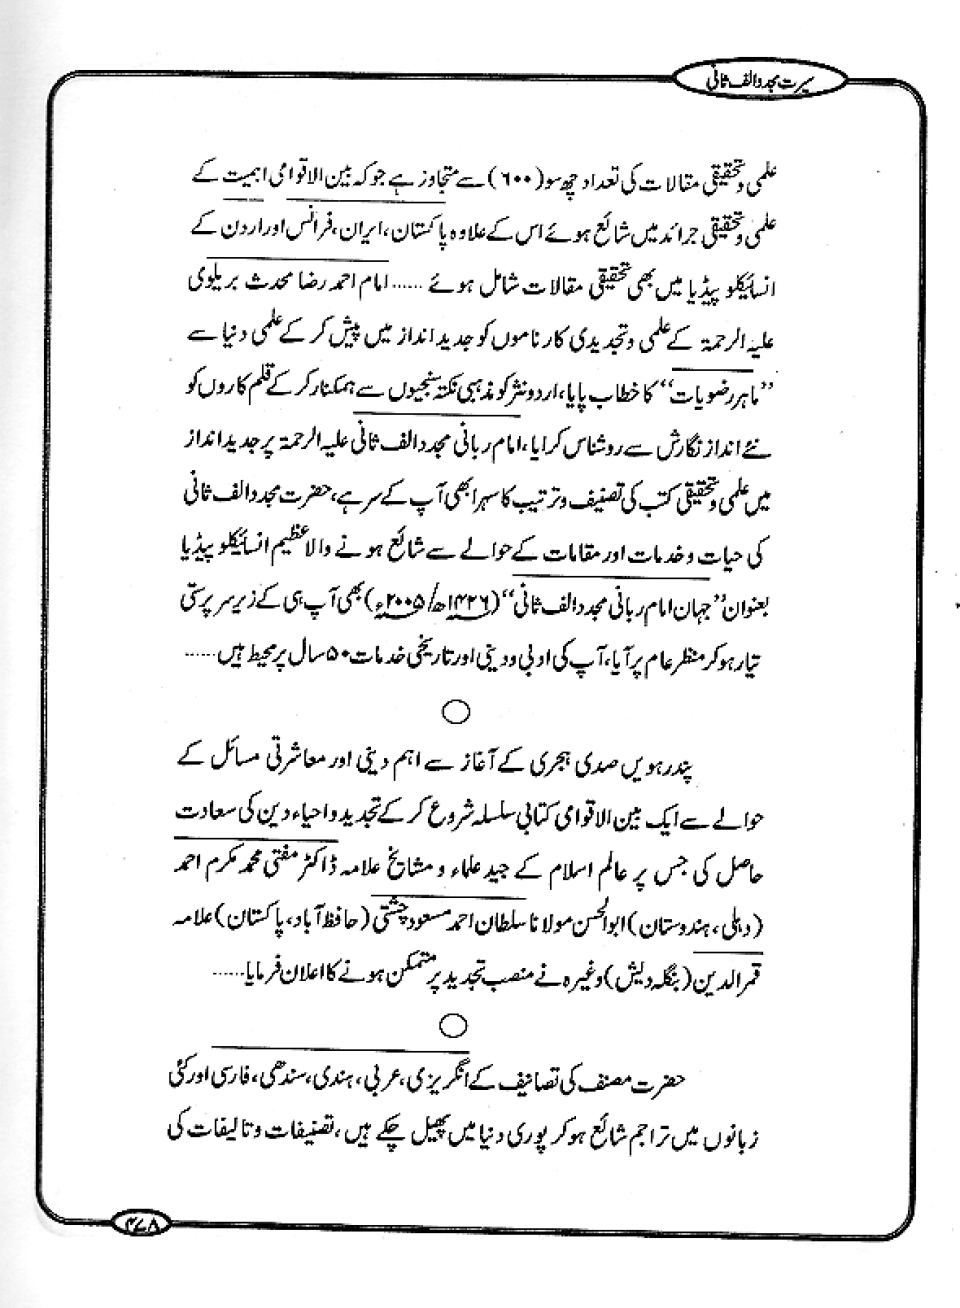 سیرت مجدد الف ثانی
علمی و تحقیقی مقالات کی تعداد چھ سو (۶۰۰) سے متجاوز ہے جو کہ بین الاقوامی اہمیت کے
علمی و تحقیقی جرائد میں شائع ہوئے اس کے علاوہ پاکستان، ایران، فرانس اور اردن کے
انسائیکلو پیڈیا میں بھی تحقیقی مقالات شامل ہوئے ...... امام احمد رضا محدث بریلوی
علیہ الرحمۃ کے علمی و تجدیدی کارناموں کو جدید انداز میں پیش کر کے علمی دنیا سے
"ماہر رضویات" کا خطاب پایا، اردو نثر کو مذہبی نکتہ سنجیوں سے ہمکنار کر کے قلم کاروں کو
نئے انداز نگارش سے روشناس کرایا، امام ربانی مجدد الف ثانی علیہ الرحمۃ پر جدید انداز
میں علمی و تحقیقی کتب کی تصنیف و ترتیب کا سہرا بھی آپ کے سر ہے، حضرت مجدد الف ثانی
کی حیات و خدمات اور مقامات کے حوالے سے شائع ہونے والا عظیم انسائیکلو پیڈیا
بعنوان "جہان امام ربانی مجدد الف ثانی" (۱۴۲۶ھ/۲۰۰۵ء) بھی آپ ہی کے زیر سرپرستی
تیار ہو کر منظر عام پر آیا، آپ کی ادبی و دینی اور تاریخی خدمات ۵۰ سال پر محیط ہیں......
پندرہویں صدی ہجری کے آغاز سے اہم دینی اور معاشرتی مسائل کے
حوالے سے ایک بین الاقوامی کتابی سلسلہ شروع کر کے تجدید و احیاء دین کی سعادت
حاصل کی جس پر عالم اسلام کے جید علماء و مشایخ علامہ ڈاکٹر مفتی محمد مکرم احمد
(دہلی، ہندوستان) ابو الحسن مولانا سلطان احمد مسعود چشتی (حافظ آباد، پاکستان) علامہ
قمر الدین (بنگلہ دیش) وغیرہ نے منصب تجدید پر متمکن ہونے کا اعلان فرمایا......
حضرت مصنف کی تصانیف کے انگریزی، عربی، ہندی، سندھی، فارسی اور کئی
زبانوں میں تراجم شائع ہو کر پوری دنیا میں پھیل چکے ہیں، تصنیفات و تالیفات کی
۴۷۸